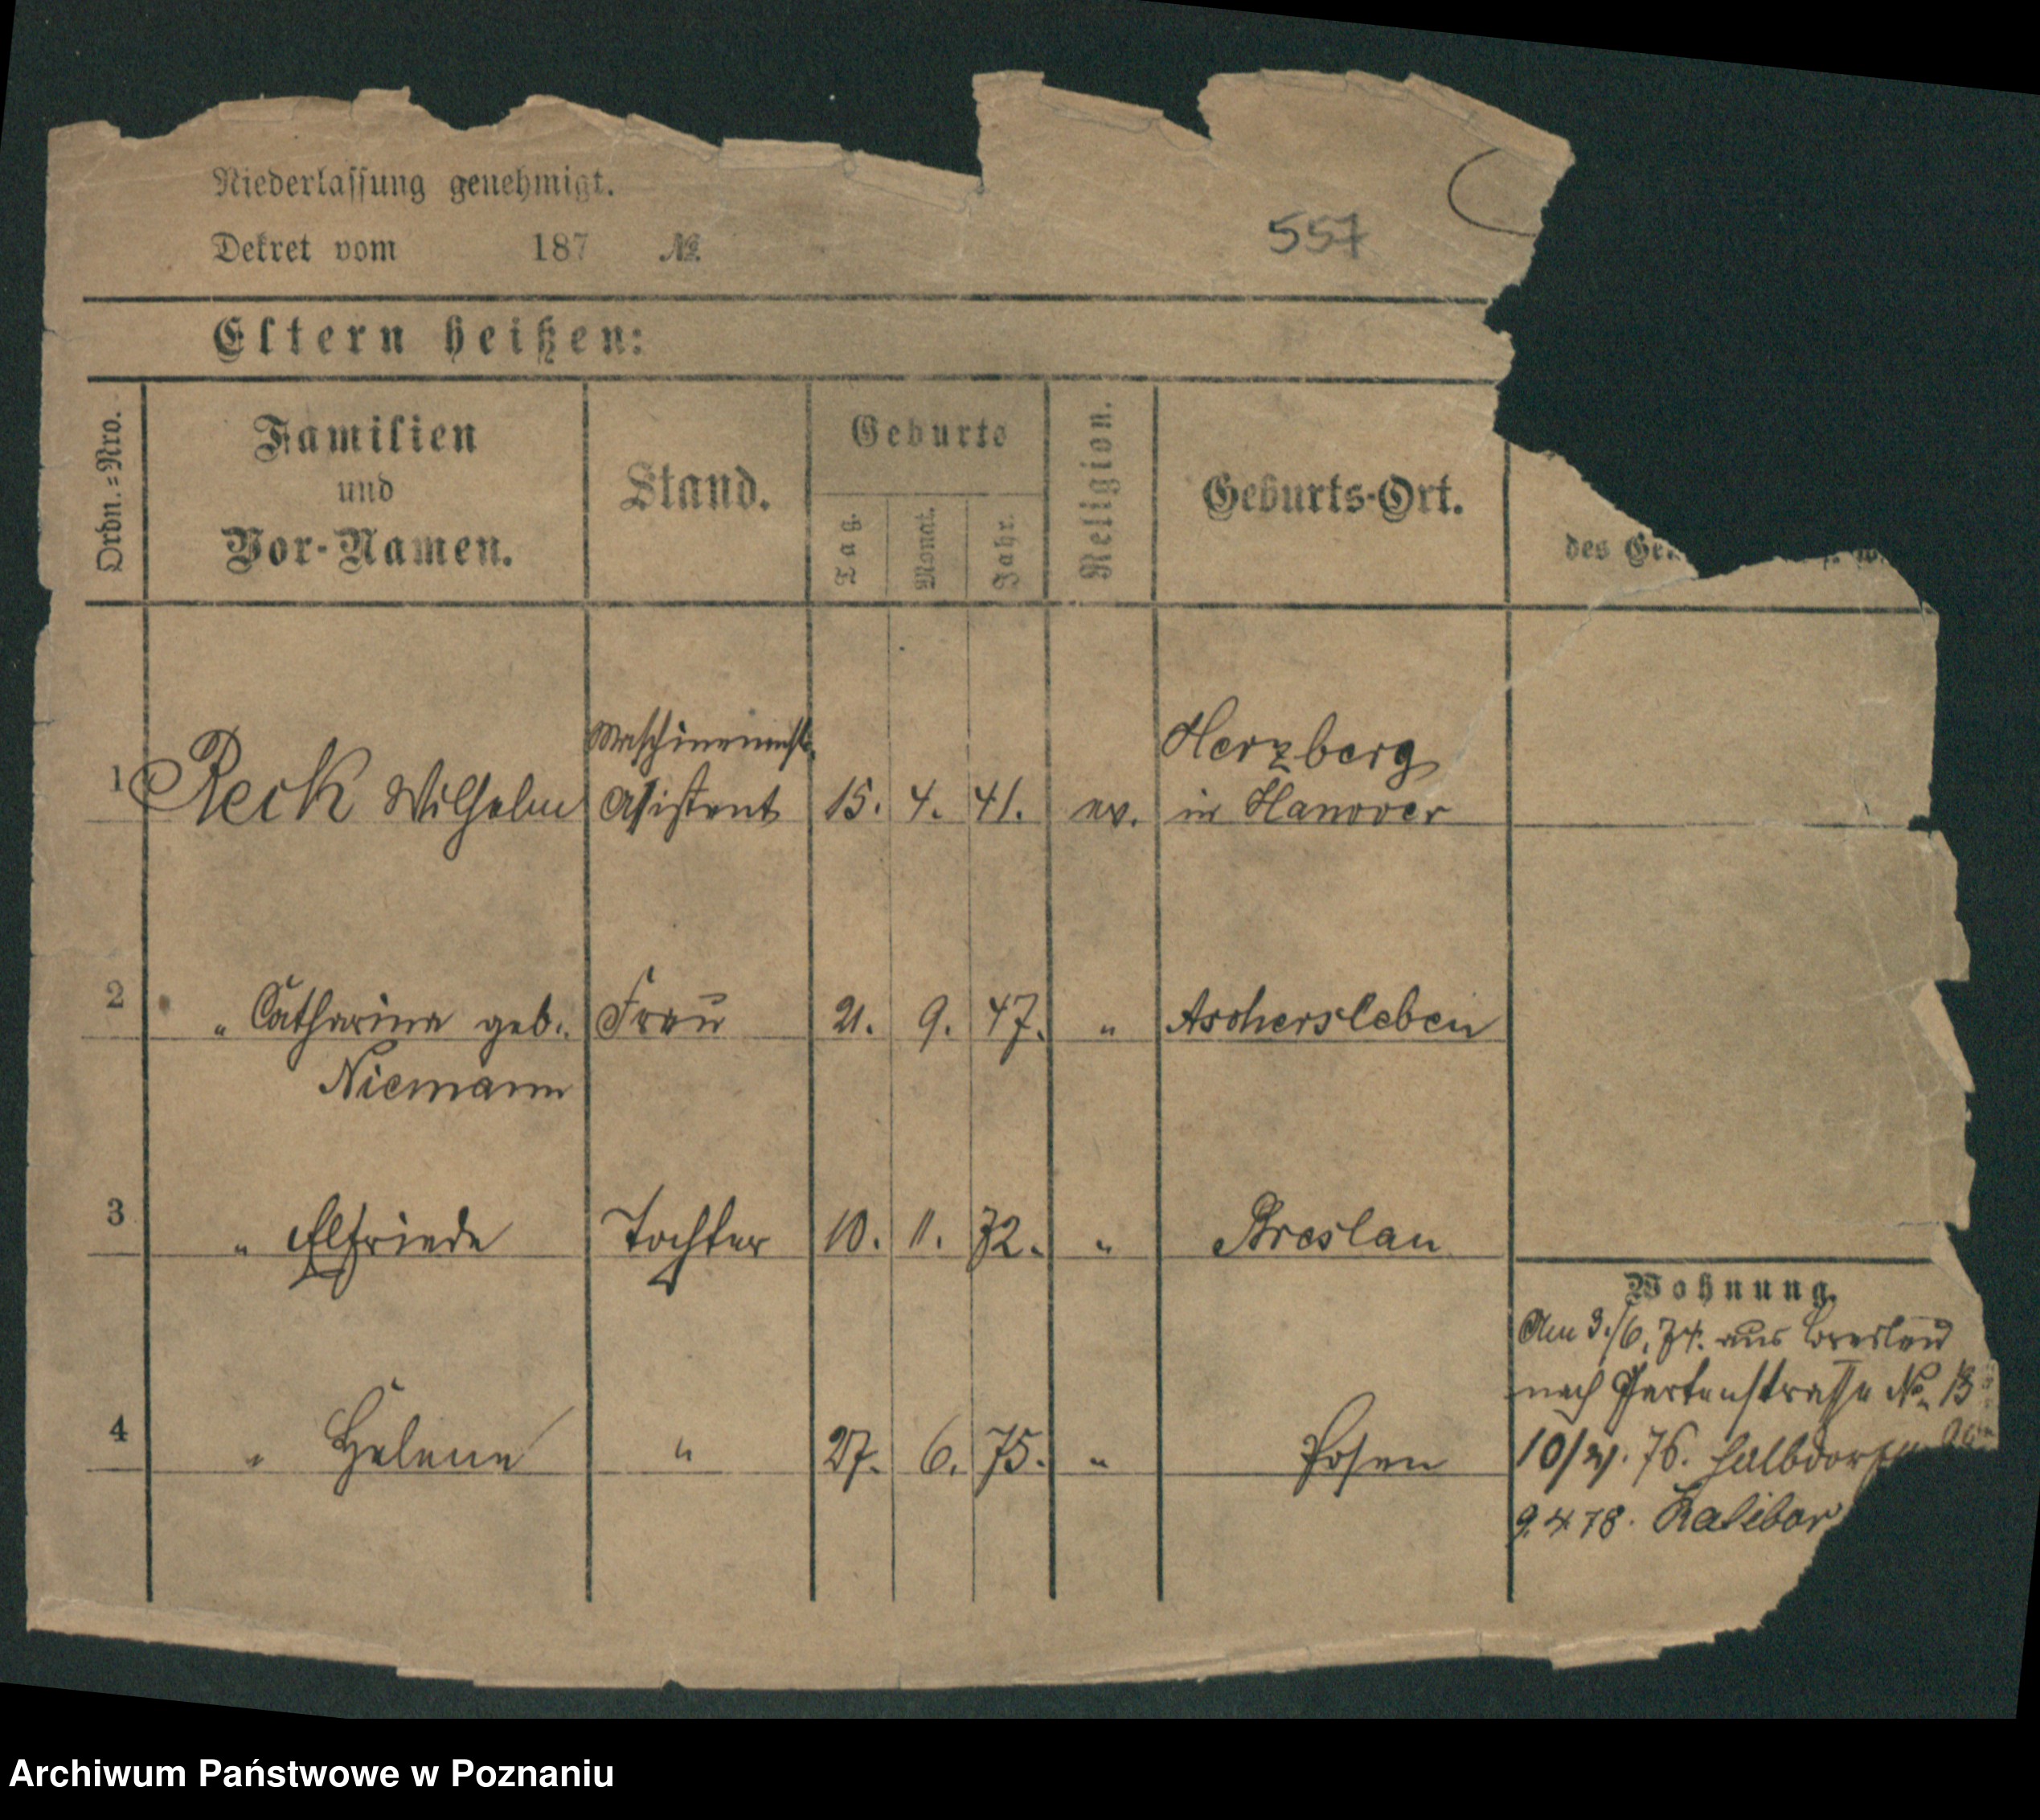 Niederlassung genehmigt.
Dekret vom 187 №
557
Eltern heißen:
Ordn.=Nro.
Familien
und
Vor-Namen.
Stand.
Geburts
Tag.
Monat.
Jahr.
Religion.
Geburts-Ort.
des
1 Reck Wilhelm Maschinenmstr. Assistent 15. 4. 41. ev. Herzberg
in Hanover
2 " Catharina geb. Frau 21. 9. 47. " Aschersleben
Niemann
3 " Elfriede Tochter 10. 11. 72. " Breslau
Wohnung.
Am 3./6. 74. aus Breslau
nach Gartenstrasse No. 13
4 " Helene " 27. 6. 75. " Posen
10/ 76. Halbdorf
9.4.78. Ratibor
Archiwum Państwowe w Poznaniu